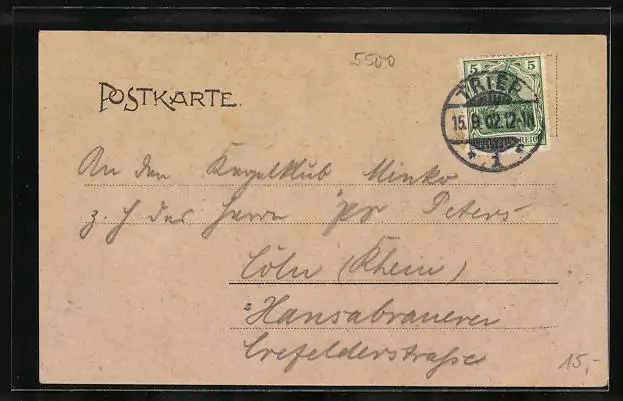 5500
POSTKARTE.
5 5
REICH
TRIER
15.9.02.12-1N
* 1 *
An den Kegelklub Minko
z. H des Herrn Peters
Cöln (Rhein)
Hansabrauerei
Crefelderstraße
15,-